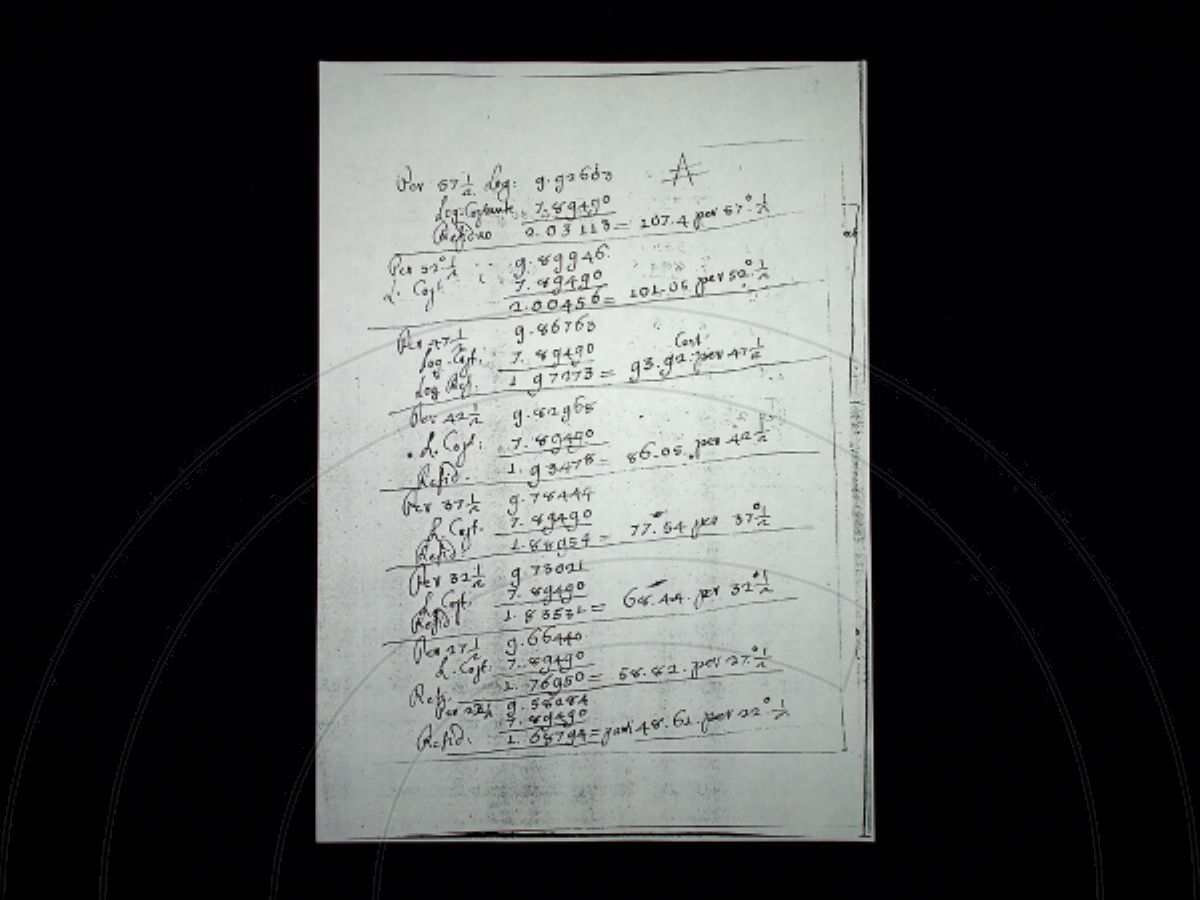 A
Per 57 1/2 Log: 9.92603
Log. Costante 7.89490
Residuo 2.03113 = 107.4 per 57° 1/2
Per 52° 1/2 9.89946.
L. Cost. 7.89490
2.00456 = 101.05 per 52° 1/2
Per 47 1/2 9.86763
Log. Cost. 7.89490
Log Resi. 1.97273 = 93.92. per 47 1/2
Per 42 1/2 9.82968
L. Cost: 7.89490
Resid. 1.93478 = 86.05. per 42 1/2
Per 37 1/2 9.78444
L. Cost. 7.89490
Resid: 1.88954 = 77.54 per 37° 1/2
Per 32 1/2 9.73021
L. Cost. 7.89490
Resid: 1.83531 = 68.44. per 32° 1/2
Per 27 1/2 9.66440.
L. Cost: 7.89490
Resi. 1.76950 = 58.82. per 27.° 1/2
Per 22 1/2 9.58284
7.89490
Resid: 1.68794 = 48.61. per 22° 1/2